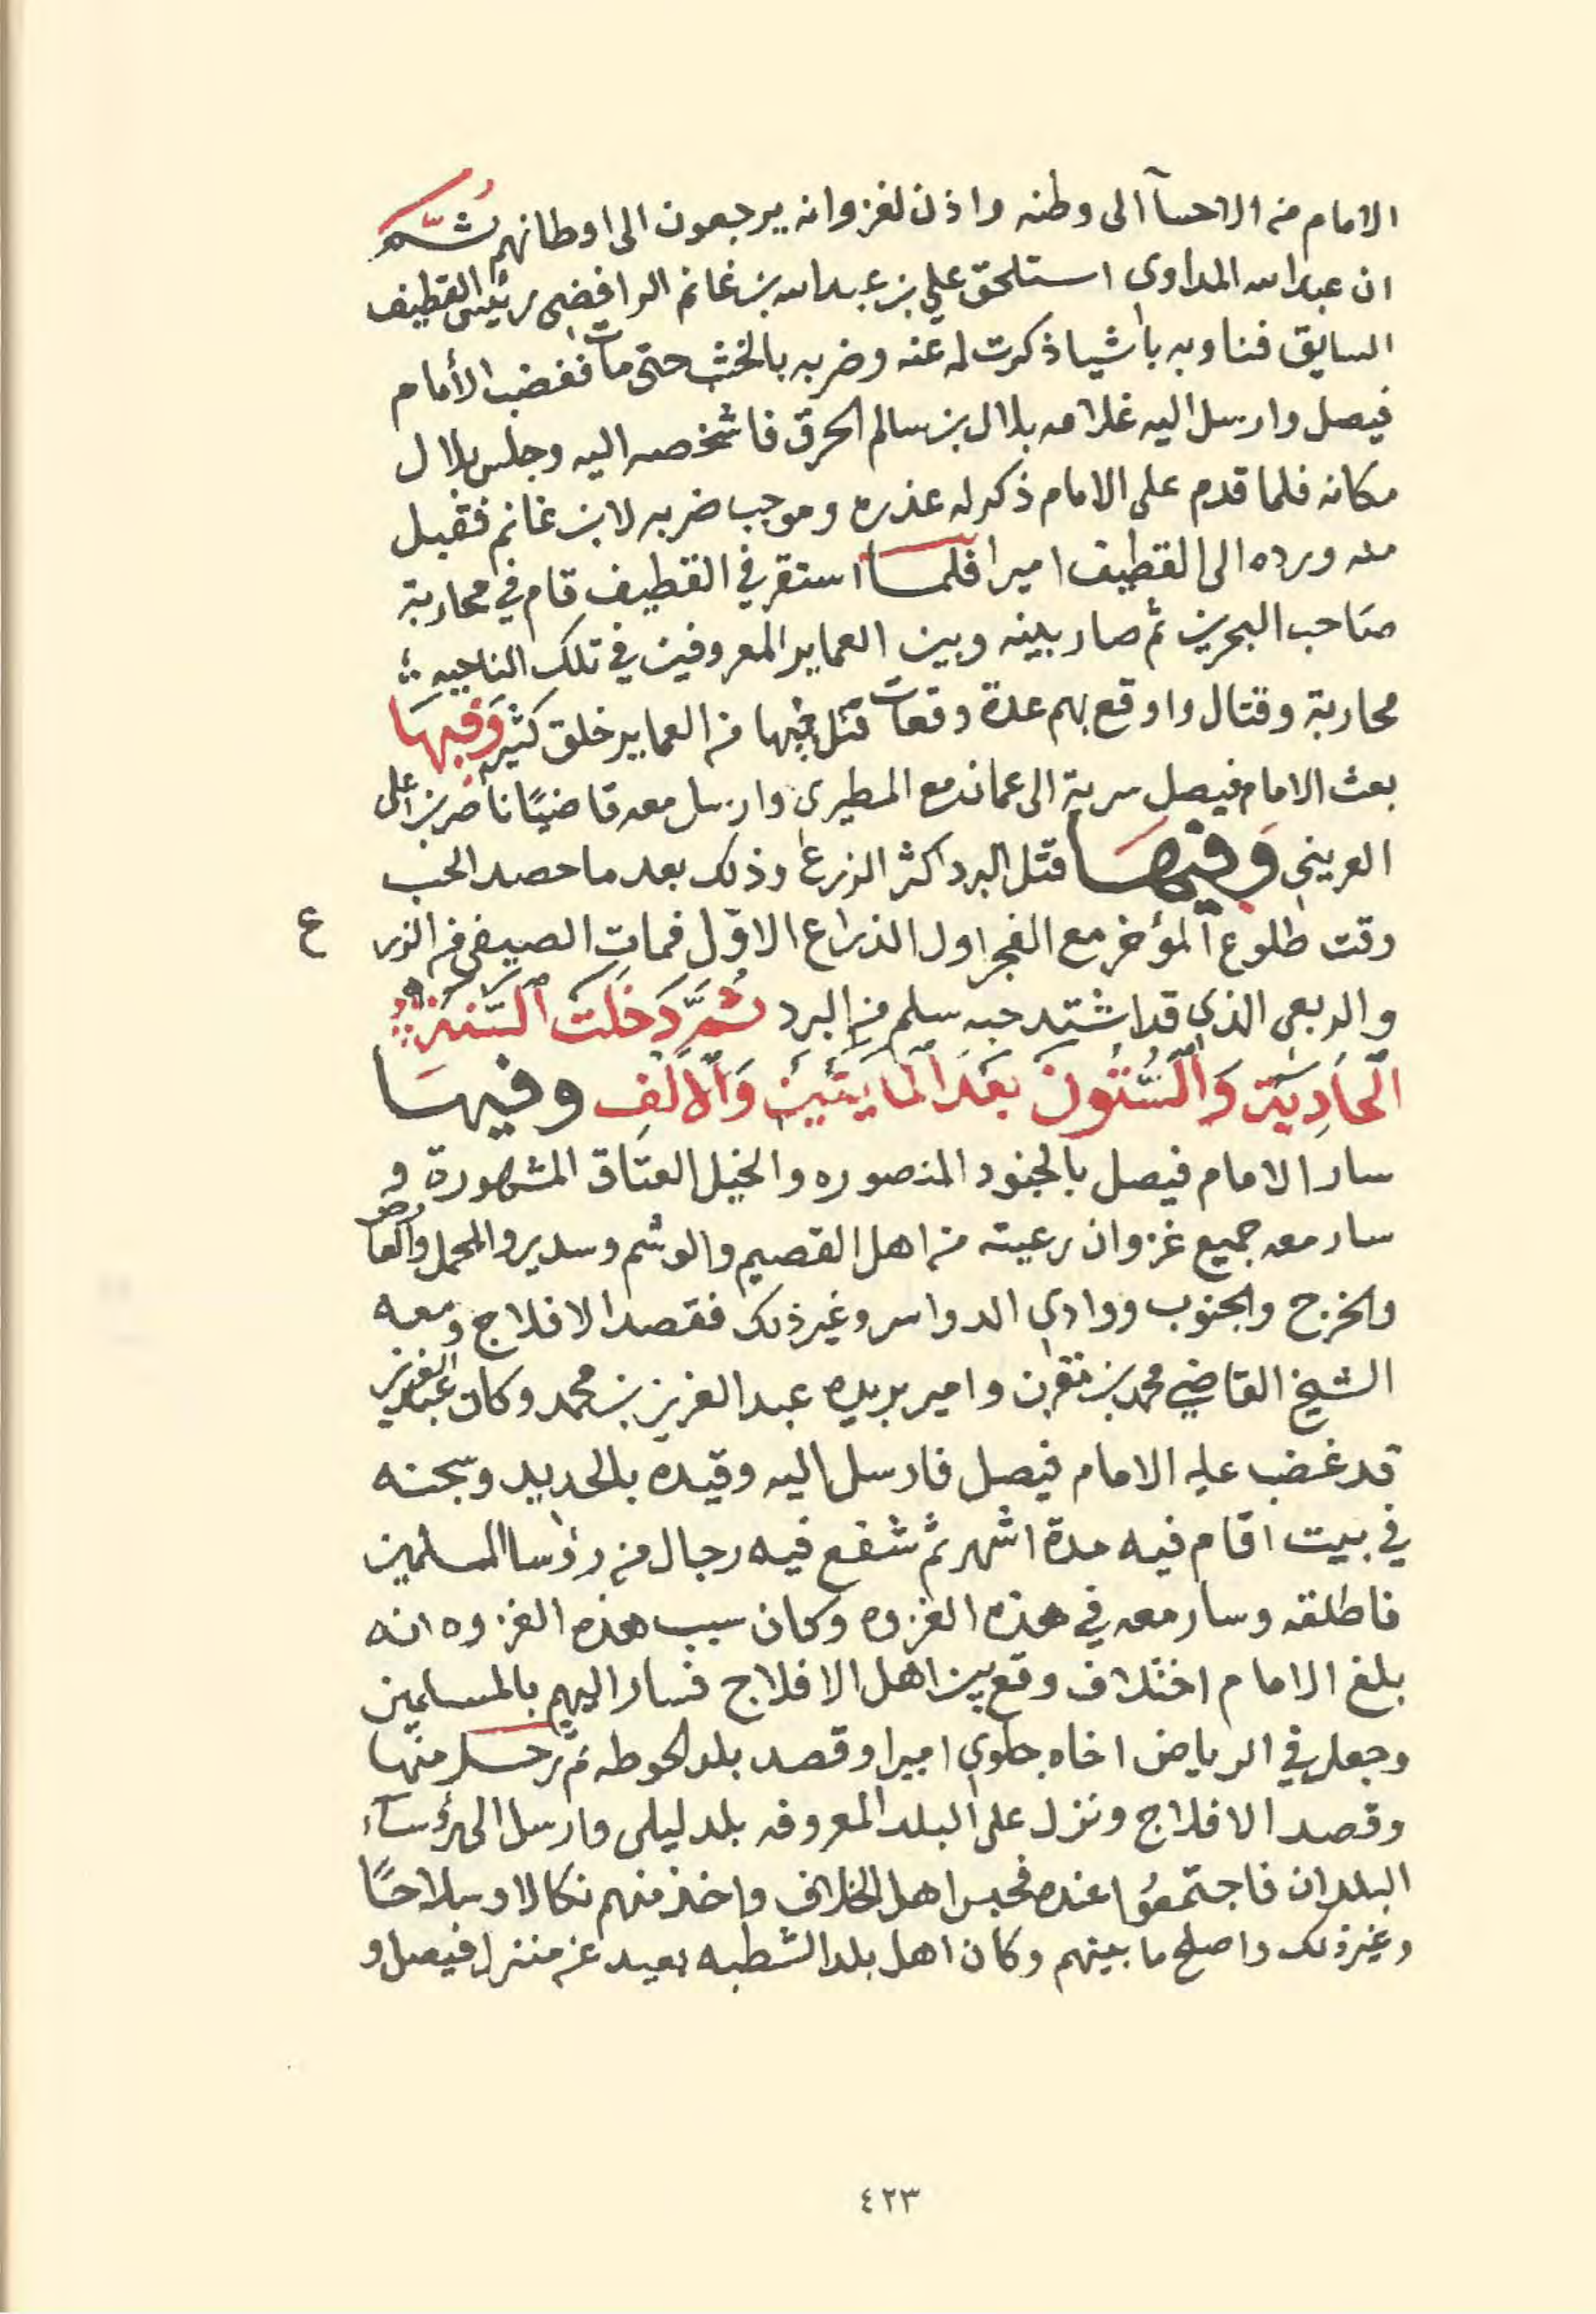 الامام من الاحسآ الى وطنه واذن لغزوانه يرجعون الى اوطانهم ثُمَّ
ان عبدالله المداوي استلحق علي بن عبدالله بن غانم الرافضي رئيس القطيف
السابق فناوبه باشيا ذكرت له عنه وضربه بالخشب حتى مات فغضب الأمام
فيصل وارسل اليه غلامه بلال بن سالم الحرق فاشخصه اليه وجلس بلال
مكانه فلما قدم على الامام ذكر له عذره وموجب ضربه لابن غانم فقبل
منه ورده الى القطيف اميرا فلما استقر في القطيف قام في محاربة
صاحب البحرين ثم صار بينه وبين العماير المعروفين في تلك الناحيه
محاربة وقتال واوقع بهم عدة وقعات قتل فيها من العماير خلق كثير وَفيهَا
بعث الامام فيصل سرية الى عمان مع المطيرى وارسل معه قاضيًا ناصر بن على
العريني وَفيهَا قتل البرد اكثر الزرع وذلك بعد ما حصد الحب
وقت طلوع المؤخر مع الفجر اول الذراع الاوّل فمات الصيفى من الزرع
والربعى الذي قد اشتد حبه سلم من البرد ثُمَّ دَخَلَتْ السَّنَة
الْحَادِيَة وَالسُّتُونَ بَعْدَ الْمَايَتَيْن وَالأَلْفِ وفيهَا
سار الامام فيصل بالجنود المنصوره والخيل العتاق المشهورة و
سار معه جميع غزوان رعيته من اهل القصيم والوشم وسدير والمحمل والعارض
والخرج والجنوب ووادي الدواسر وغير ذلك فقصد الافلاج ومعه
الشيخ القاضي محمد بن مقرن وامير بريده عبدالعزيز بن محمد وكان عبدالعزيز
قد غضب عليه الامام فيصل فارسل اليه وقيده بالحديد وسجنه
في بيت اقام فيه مدة اشهر ثم شفع فيه رجال من رؤسا المسلمين
فاطلقه وسار معه في هذه الغزوه وكان سبب هذه الغزوه انه
بلغ الامام اختلاف وقع بين اهل الافلاج فسار اليهم بالمسلمين
وجعل في الرياض اخاه جلوي اميرا وقصد بلد الحوطه ثم رحل منها
وقصد الافلاج ونزل على البلد المعروفه بلد ليلى وارسل الى رؤسآء
البلدان فاجتمعُوا عنده فحبس اهل الخلاف واخذ منهم نكالا وسلاحًا
وغير ذلك واصلح ما بينهم وكان اهل بلد الشطبه بعيد عن منزل فيصل و
٤٢٣